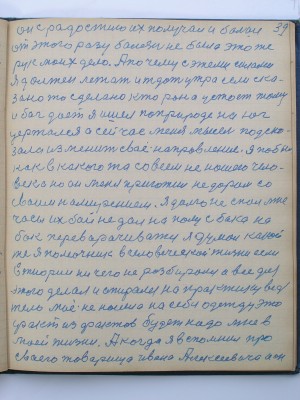 он с радостию их получал и болел 39
от этого разу болезни не было это же
рук моих дело. А почему с этими силами
я должен лежать и ждать утра если ска-
зано то сделано кто рано встает тому
и бог дает я и шел по природе на ног
держался а сейчас меня мысел подска-
зала изменить своё направление. Я побыл
как в какого та совсем не нашего чело-
века но он меня приютил не даром со
своим намирением. Я долго не спал мне
часы их бой не дал на полу с бока на
бок переварачиваясь я думал какой
же я помочник в человеческой жизни если
в теории ничего не разбирался а все де
этого делал и стирался на практику ведь
тело моё не носила на себя одежду это
факт из фактов будет надо мне в
моей жизни. А когда я вспомнил про
своего товарища Ивана Алексеевича